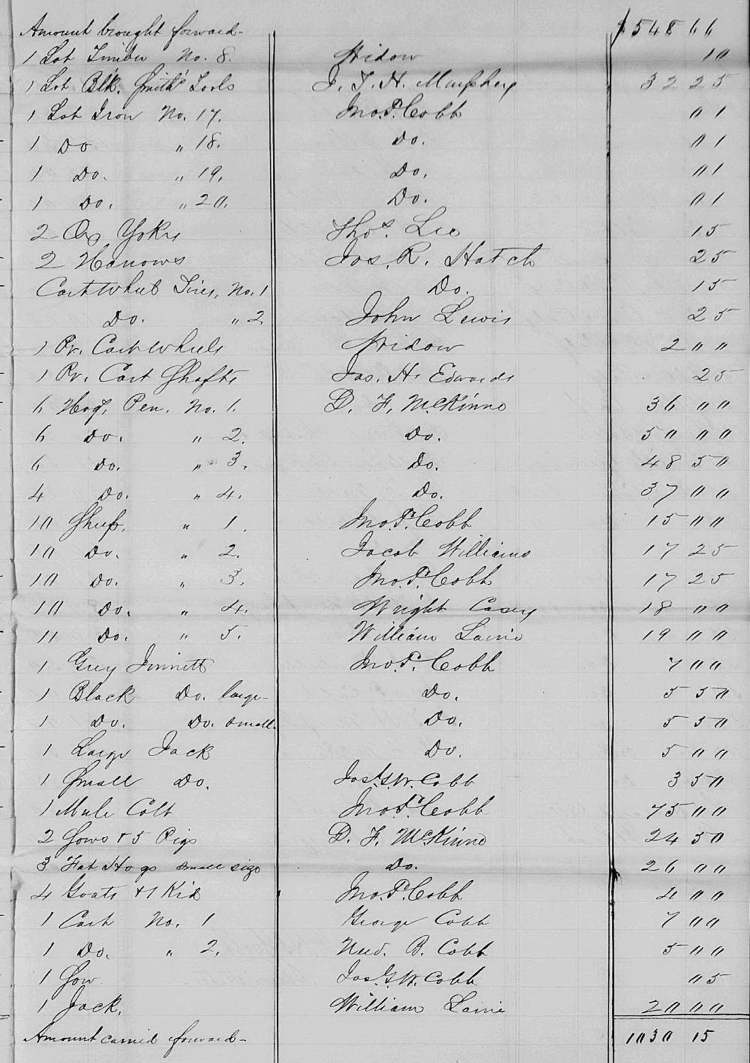 Amount brought forward- $548 66
1 Lot Timber No. 8. Widow 10
1 Lot Blk. Smith Tools J. T. H. Murphey 32 25
1 Lot Iron No. 17. Jno. P. Cobb 01
1 Do " 18. Do. 01
1 Do. " 19. Do. 01
1 Do. " 20. Do. 01
2 Ox Yokes Thos. Lee 15
2 Harrows Jas. R. Hatch 25
Cart Wheel Tires, No. 1 Do. 15
Do. " 2 John Lewis 25
1 Pr. Cart Wheels Widow 2 00
1 Pr. Cart Shafts Jas. H. Edwards 25
6 Hogs, Pen, No. 1. D. F. McKinne 36 00
6 Do. " 2. Do. 50 00
6 Do. " 3. Do. 48 50
4 Do. " 4. Do. 37 00
10 Sheep. " 1. Jno. P. Cobb 15 00
10 Do. " 2. Jacob Williams 17 25
10 Do. " 3. Jno. P. Cobb 17 25
10 Do. " 4. Wright Casey 18 00
11 Do. " 5. William Lanie 19 00
1 Grey Jinnett Jno. P. Cobb 7 00
1 Black Do. large- Do. 5 50
1 Do. Do. small. Do. 5 50
1 Large Jack Do. 5 00
1 Small Do. Jas. G. W. Cobb 3 50
1 Mule Colt Jno. P. Cobb 75 00
2 Sows & 5 Pigs D. F. McKinne 24 50
3 Fat Hogs small size Do. 26 00
4 Goats & 1 Kid Jno. P. Cobb 4 00
1 Cart No. 1 George Cobb 7 00
1 Do. " 2. Need. B. Cobb 5 00
1 Sow Jas. G. W. Cobb 05
1 Jack. William Lanie 20 00
Amount carried forward- 1030 15